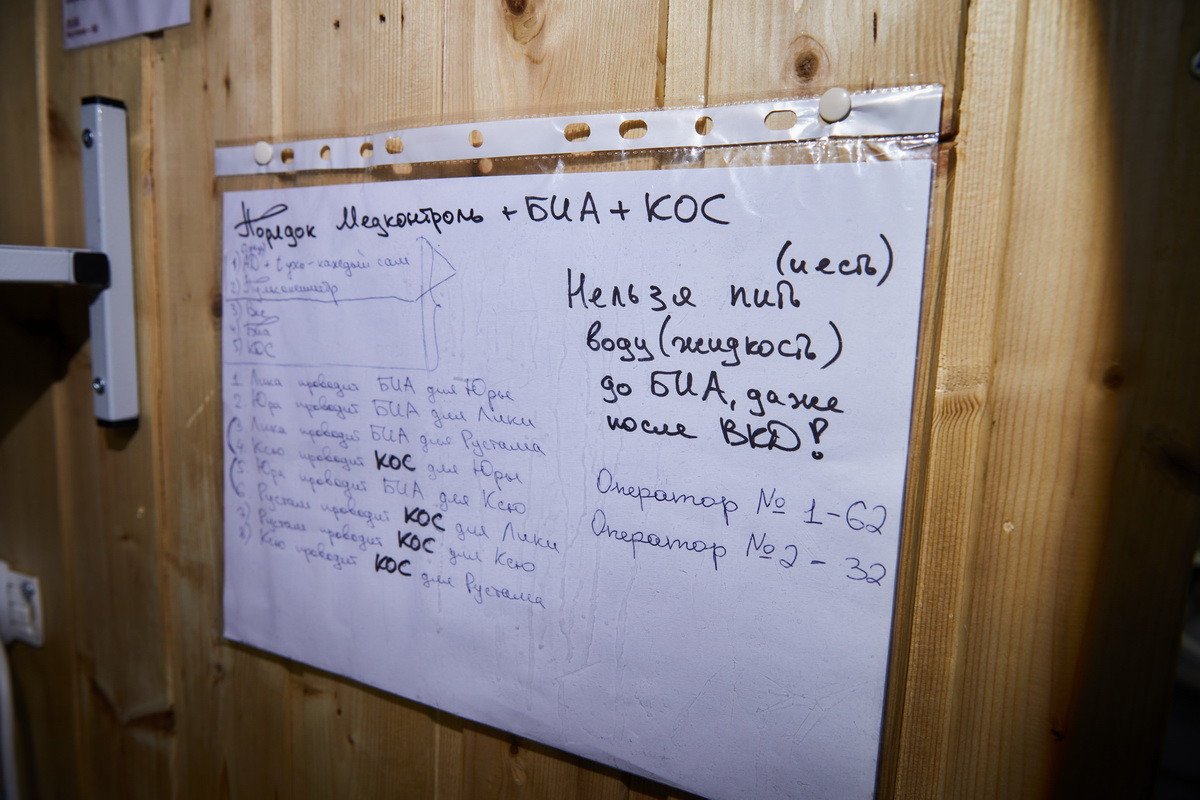 Порядок Медконтроль + БИА + КОС
1) АД + t ухо - каждый сам
2) Пульсоксиметр
3) Вес
4) БИА
5) КОС
1. Лика проводит БИА для Юры
2. Юра проводит БИА для Лики
3. Лика проводит БИА для Рустама
4. Ксю проводит КОС для Юры
5. Юра проводит БИА для Ксю
6. Рустам проводит КОС для Лики
7) Рустам проводит КОС для Ксю
8) Ксю проводит КОС для Рустама
(и есть)
Нельзя пить
воду (жидкость)
до БИА, даже
после ВКД!
Оператор № 1 - 62
Оператор № 2 - 32